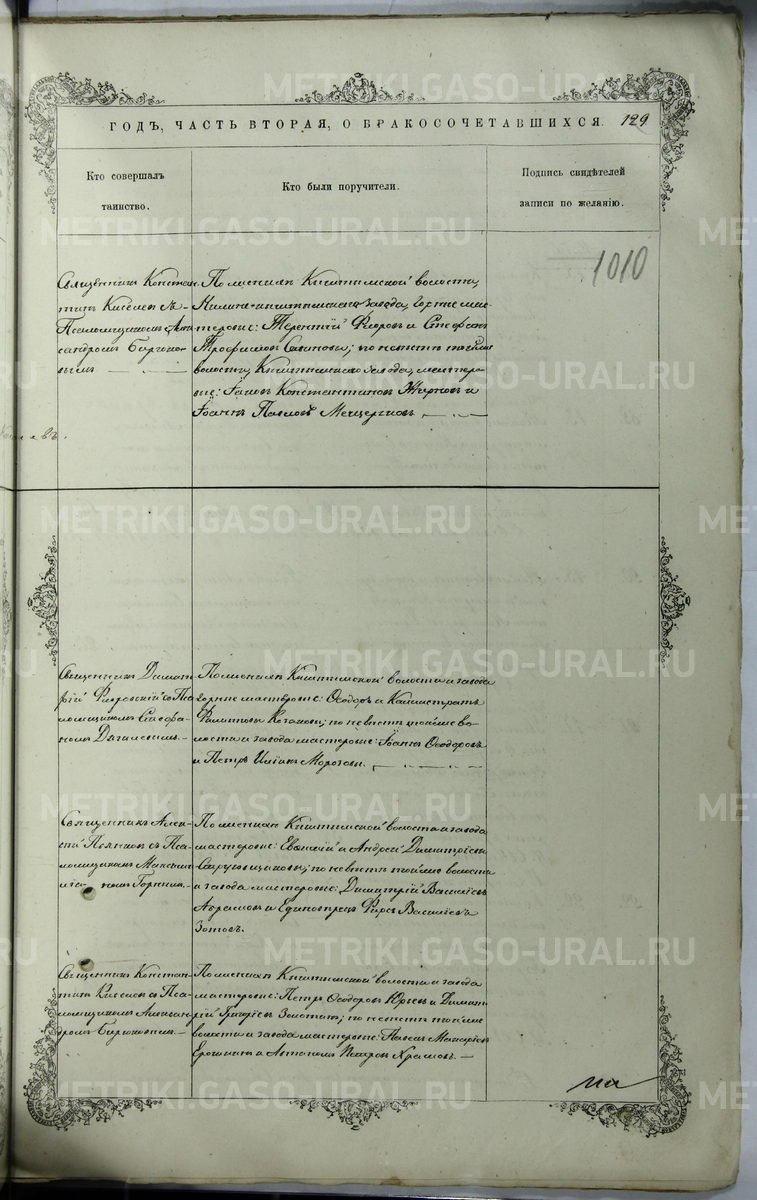 METRIKI.GASO-URAL.RU
ГОДЪ, ЧАСТЬ ВТОРАЯ, О БРАКОСОЧЕТАВШИХСЯ. 129
Кто совершалъ
таинство.
Кто были поручители.
Подпись свидѣтелей
записи по желанію.
1010
Священникъ Констан
тинъ Киселевъ съ
Псаломщикомъ Алек
сандромъ Бирюко
вымъ
По женихѣ Кыштымской волости,
Нижне-Кыштымскаго завода, горные мас
теровые: Терентій Ѳедоровъ и Стефанъ
Трофимовъ по невѣстѣ той же
волости, Кыштымскаго завода, мастеро
вые: Іаковъ Константиновъ и
Іоаннъ Павловъ Мещеряковъ
Священникъ Димит
рій съ Пса
ломщикомъ Стефа
номъ
По женихѣ Кыштымской волости и завода
горные мастеровые: Ѳеодоръ и Каллистратъ
Филиповы Казаковы; по невѣстѣ той же во
лости и завода мастеровые: Іоаннъ Ѳеодоровъ
и Петръ Иліинъ Морозовы.
Священникъ Алек
сій съ Пса
ломщикомъ Максим
По женихѣ Кыштымской волости и завода
мастеровые: Евѳимій и Андрей Димитріевы
по невѣстѣ той же волости
и завода мастеровые: Димитрій Василіевъ
и Единовѣрецъ Фирсъ Василіевъ
Зотовъ.
Священникъ Констан
тинъ Киселевъ съ Пса
ломщикомъ Алексан
дромъ Бирюковымъ.
По женихѣ Кыштымской волости и завода
мастеровые: Петръ Ѳеодоровъ Юрьевъ и Димит
рій Григоріевъ по невѣстѣ той же
волости и завода мастеровые: Павелъ Макаріевъ
и Автономъ Петровъ Храмовъ.